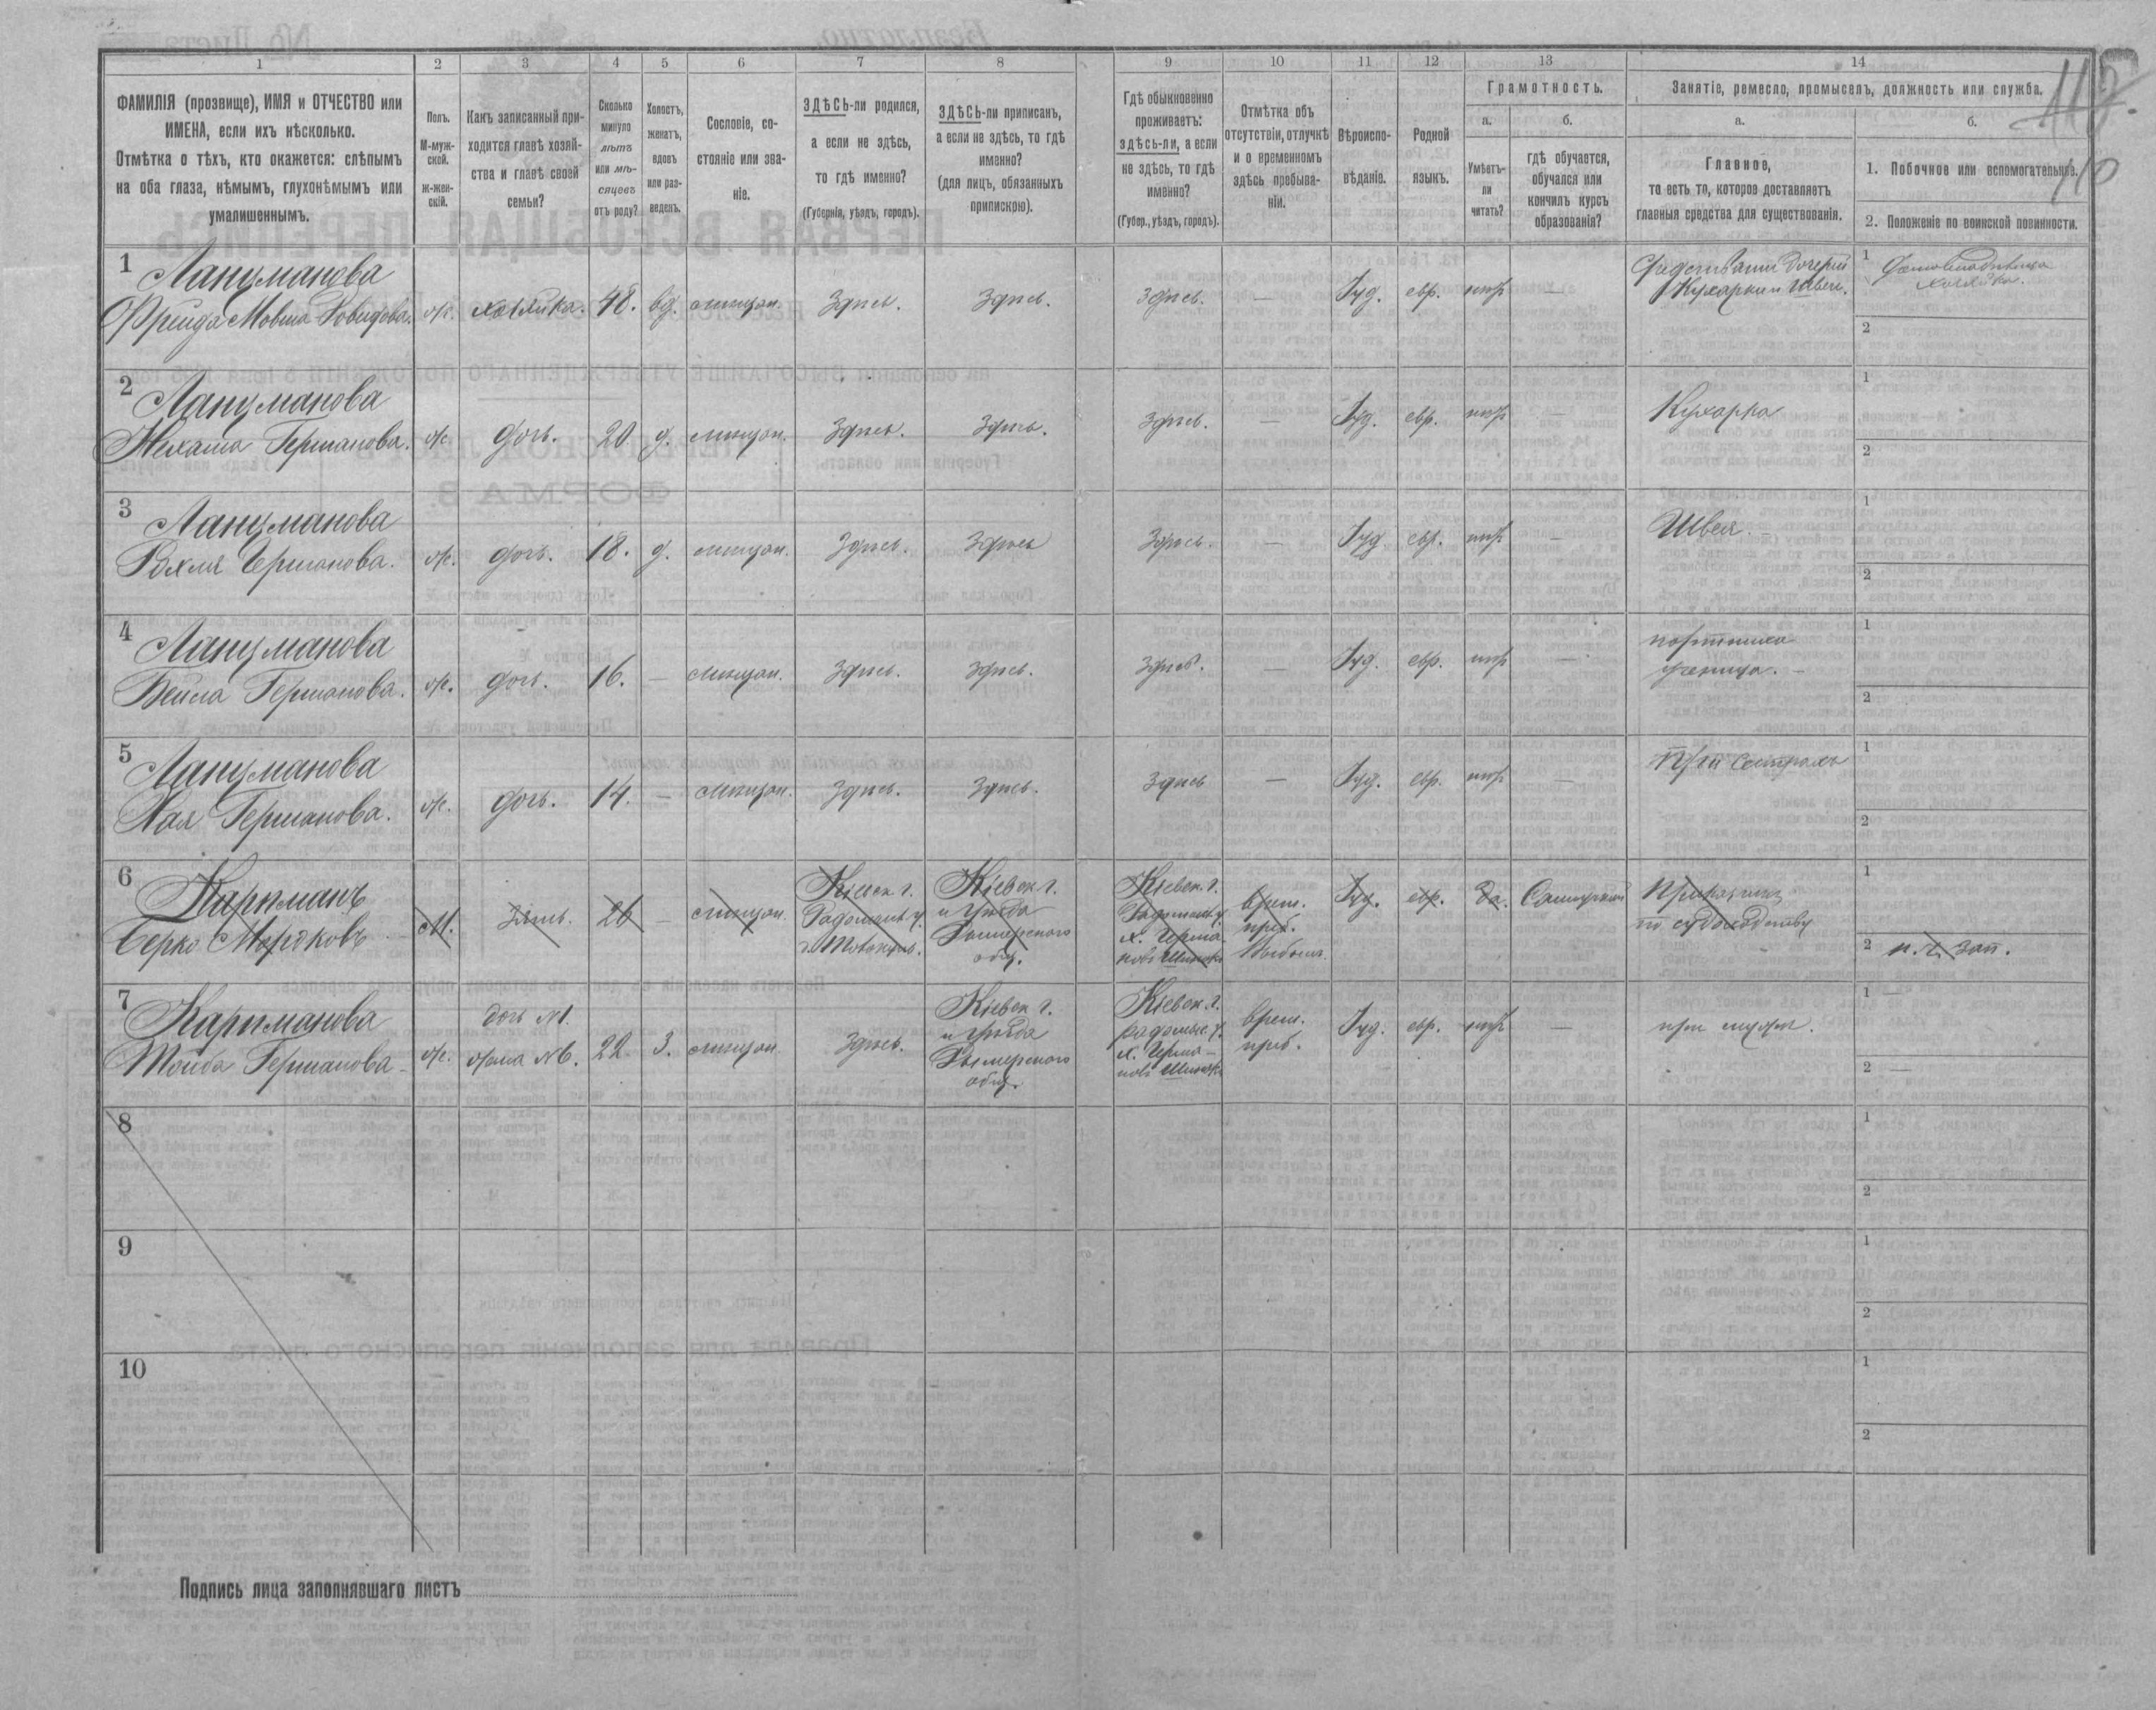 117.
110
1 2 3 4 5 6 7 8 9 10 11 12 13 14
ФАМИЛІЯ (прозвище), ИМЯ и ОТЧЕСТВО или ИМЕНА, если ихъ нѣсколько.
Отмѣтка о тѣхъ, кто окажется: слѣпымъ на оба глаза, нѣмымъ, глухонѣмымъ или умалишеннымъ.
Полъ.
М-муж-
ской.
Ж-жен-
скій.
Какъ записанный при-
ходится главѣ хозяй-
ства и главѣ своей
семьи?
Сколько
минуло
лѣтъ
или мѣ-
сяцевъ
отъ роду?
Холостъ,
женатъ,
вдовъ
или раз-
веденъ.
Сословіе, со-
стояніе или зва-
ніе.
ЗДѢСЬ-ли родился,
а если не здѣсь,
то гдѣ именно?
(Губернія, уѣздъ, городъ).
ЗДѢСЬ-ли приписанъ,
а если не здѣсь, то гдѣ
именно?
(для лицъ, обязанныхъ
припискою).
Гдѣ обыкновенно
проживаетъ:
здѣсь-ли, а если
не здѣсь, то гдѣ
именно?
(Губер., уѣздъ, городъ).
Отмѣтка объ
отсутствіи, отлучкѣ
и о временномъ
здѣсь пребыва-
ніи.
Вѣроиспо-
вѣданіе.
Родной
языкъ.
Грамотность.
а.
Умѣетъ-
ли
читать?
б.
гдѣ обучается,
обучался или
кончилъ курсъ
образованія?
Занятіе, ремесло, промыселъ, должность или служба.
а.
Главное,
то есть то, которое доставляетъ
главныя средства для существованія.
б.
1. Побочное или вспомогательное.
2. Положеніе по воинской повинности.
1 Ланцманова
Фрейда Мовша Довидова. ж. хозяйка. 48. вд. мѣщан. Здѣсь. Здѣсь. Здѣсь. — Іуд. евр. нѣт —
Кухарки и Швеи.
1 Домовладѣлица
хозяйка.
2
2 Ланцманова
Нехама Германова. ж. дочь. 20. д. мѣщан. Здѣсь. Здѣсь. Здѣсь. — Іуд. евр. нѣт — Кухарка
1
2
3 Ланцманова
Рохля Германова. ж. дочь. 18. д. мѣщан. Здѣсь. Здѣсь Здѣсь. — Іуд. евр. нѣт — Швея. —
1
2
4 Ланцманова
Бейла Германова. ж. дочь. 16. — мѣщан. Здѣсь. Здѣсь. Здѣсь. — Іуд. евр. нѣт —
ученица. —
1
2
5 Ланцманова
Хая Германова. ж. дочь. 14. — мѣщан. Здѣсь. Здѣсь. Здѣсь — Іуд. евр. нѣт — При сестрахъ
1
2
6 Карпманъ
Берко Мордковъ — М. Зять. 26 — мѣщан.
Кіевск. г.
Радомысл. у.
Кіевск. г.
и уѣзда
Дымерского
общ.
Кіевск. г.
Радомысл. у.
х. Герма-
новъ
врем.
преб.
Іуд. евр. да.
1
2 н. ч. зап.
7 Карпманова
Тойба Германова — ж.
дочь №1.
жена №6.
22. З. мѣщан. Здѣсь.
Кіевск. г.
и уѣзда
Дымерского
общ.
Кіевск. г.
радомыс. у.
х. Герма-
новъ
врем.
преб.
Іуд. евр. нѣт — при мужѣ.
1 —
2 —
8
1
2
9
1
2
10
1
2
Подпись лица заполнявшаго листъ